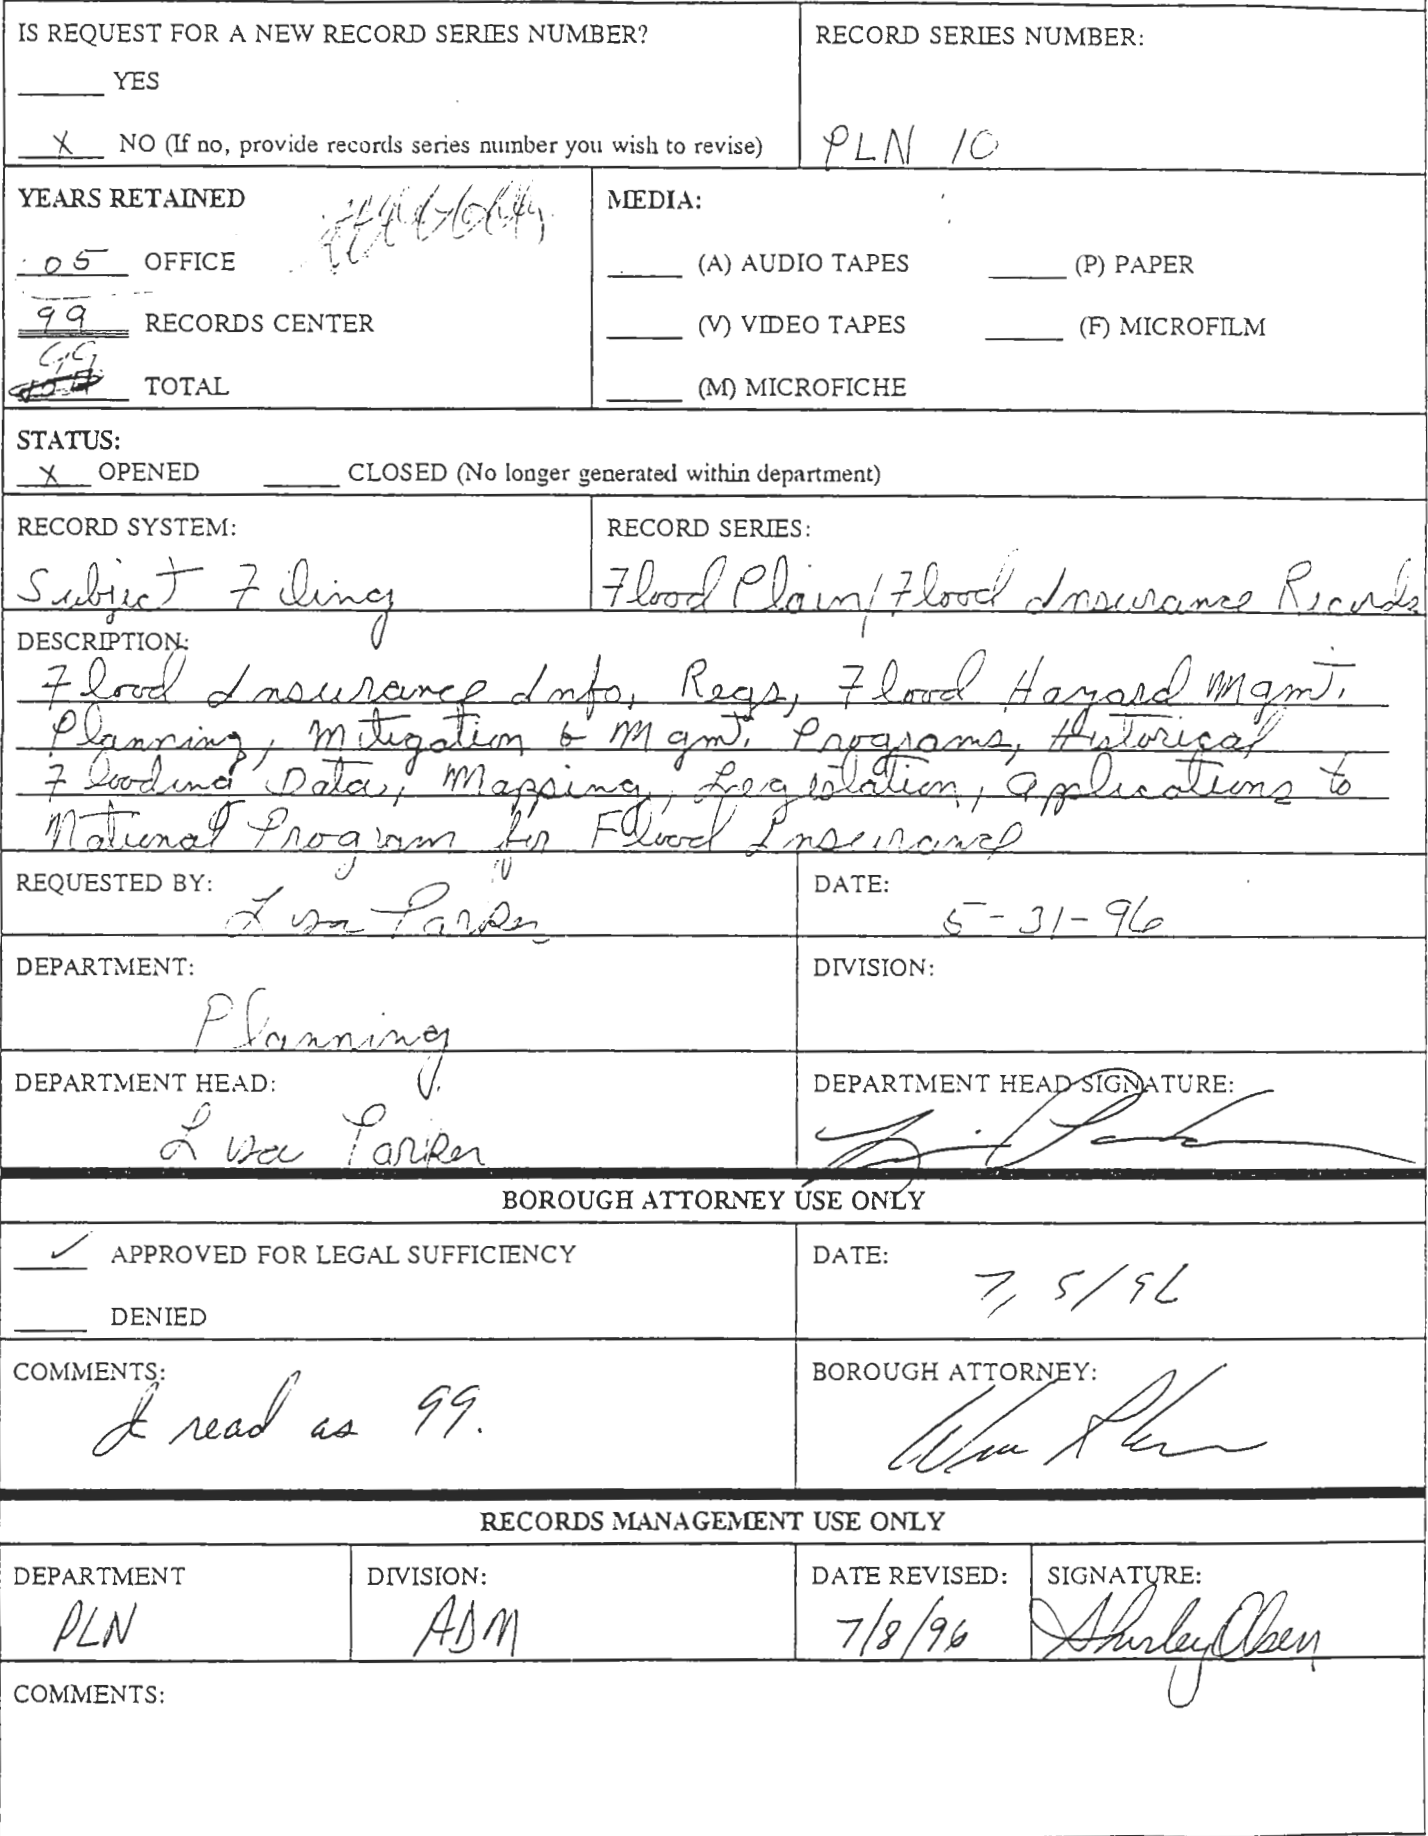 IS REQUEST FOR A NEW RECORD SERIES NUMBER?
YES
X NO (If no, provide records series number you wish to revise)
RECORD SERIES NUMBER:
PLN 10
YEARS RETAINED
05 OFFICE
99 RECORDS CENTER
99 TOTAL
MEDIA:
(A) AUDIO TAPES (P) PAPER
(V) VIDEO TAPES (F) MICROFILM
(M) MICROFICHE
STATUS:
X OPENED CLOSED (No longer generated within department)
RECORD SYSTEM:
Subject Filing
RECORD SERIES:
Flood Plain/Flood Insurance Records
DESCRIPTION:
Flood Insurance Info, Regs, Flood Hazard Mgmt.
Planning, Mitigation & Mgmt. Programs, Historical
Flooding Data, Mapping, Legislation, Applications to
National Program for Flood Insurance
REQUESTED BY:
Lisa Parker
DATE:
5-31-96
DEPARTMENT:
Planning
DIVISION:
DEPARTMENT HEAD:
Lisa Parker
DEPARTMENT HEAD SIGNATURE:
BOROUGH ATTORNEY USE ONLY
✓ APPROVED FOR LEGAL SUFFICIENCY
DENIED
DATE:
7, 5/96
COMMENTS:
I read as 99.
BOROUGH ATTORNEY:
RECORDS MANAGEMENT USE ONLY
DEPARTMENT
PLN
DIVISION:
ADM
DATE REVISED:
7/8/96
SIGNATURE:
Shirley Olsen
COMMENTS: